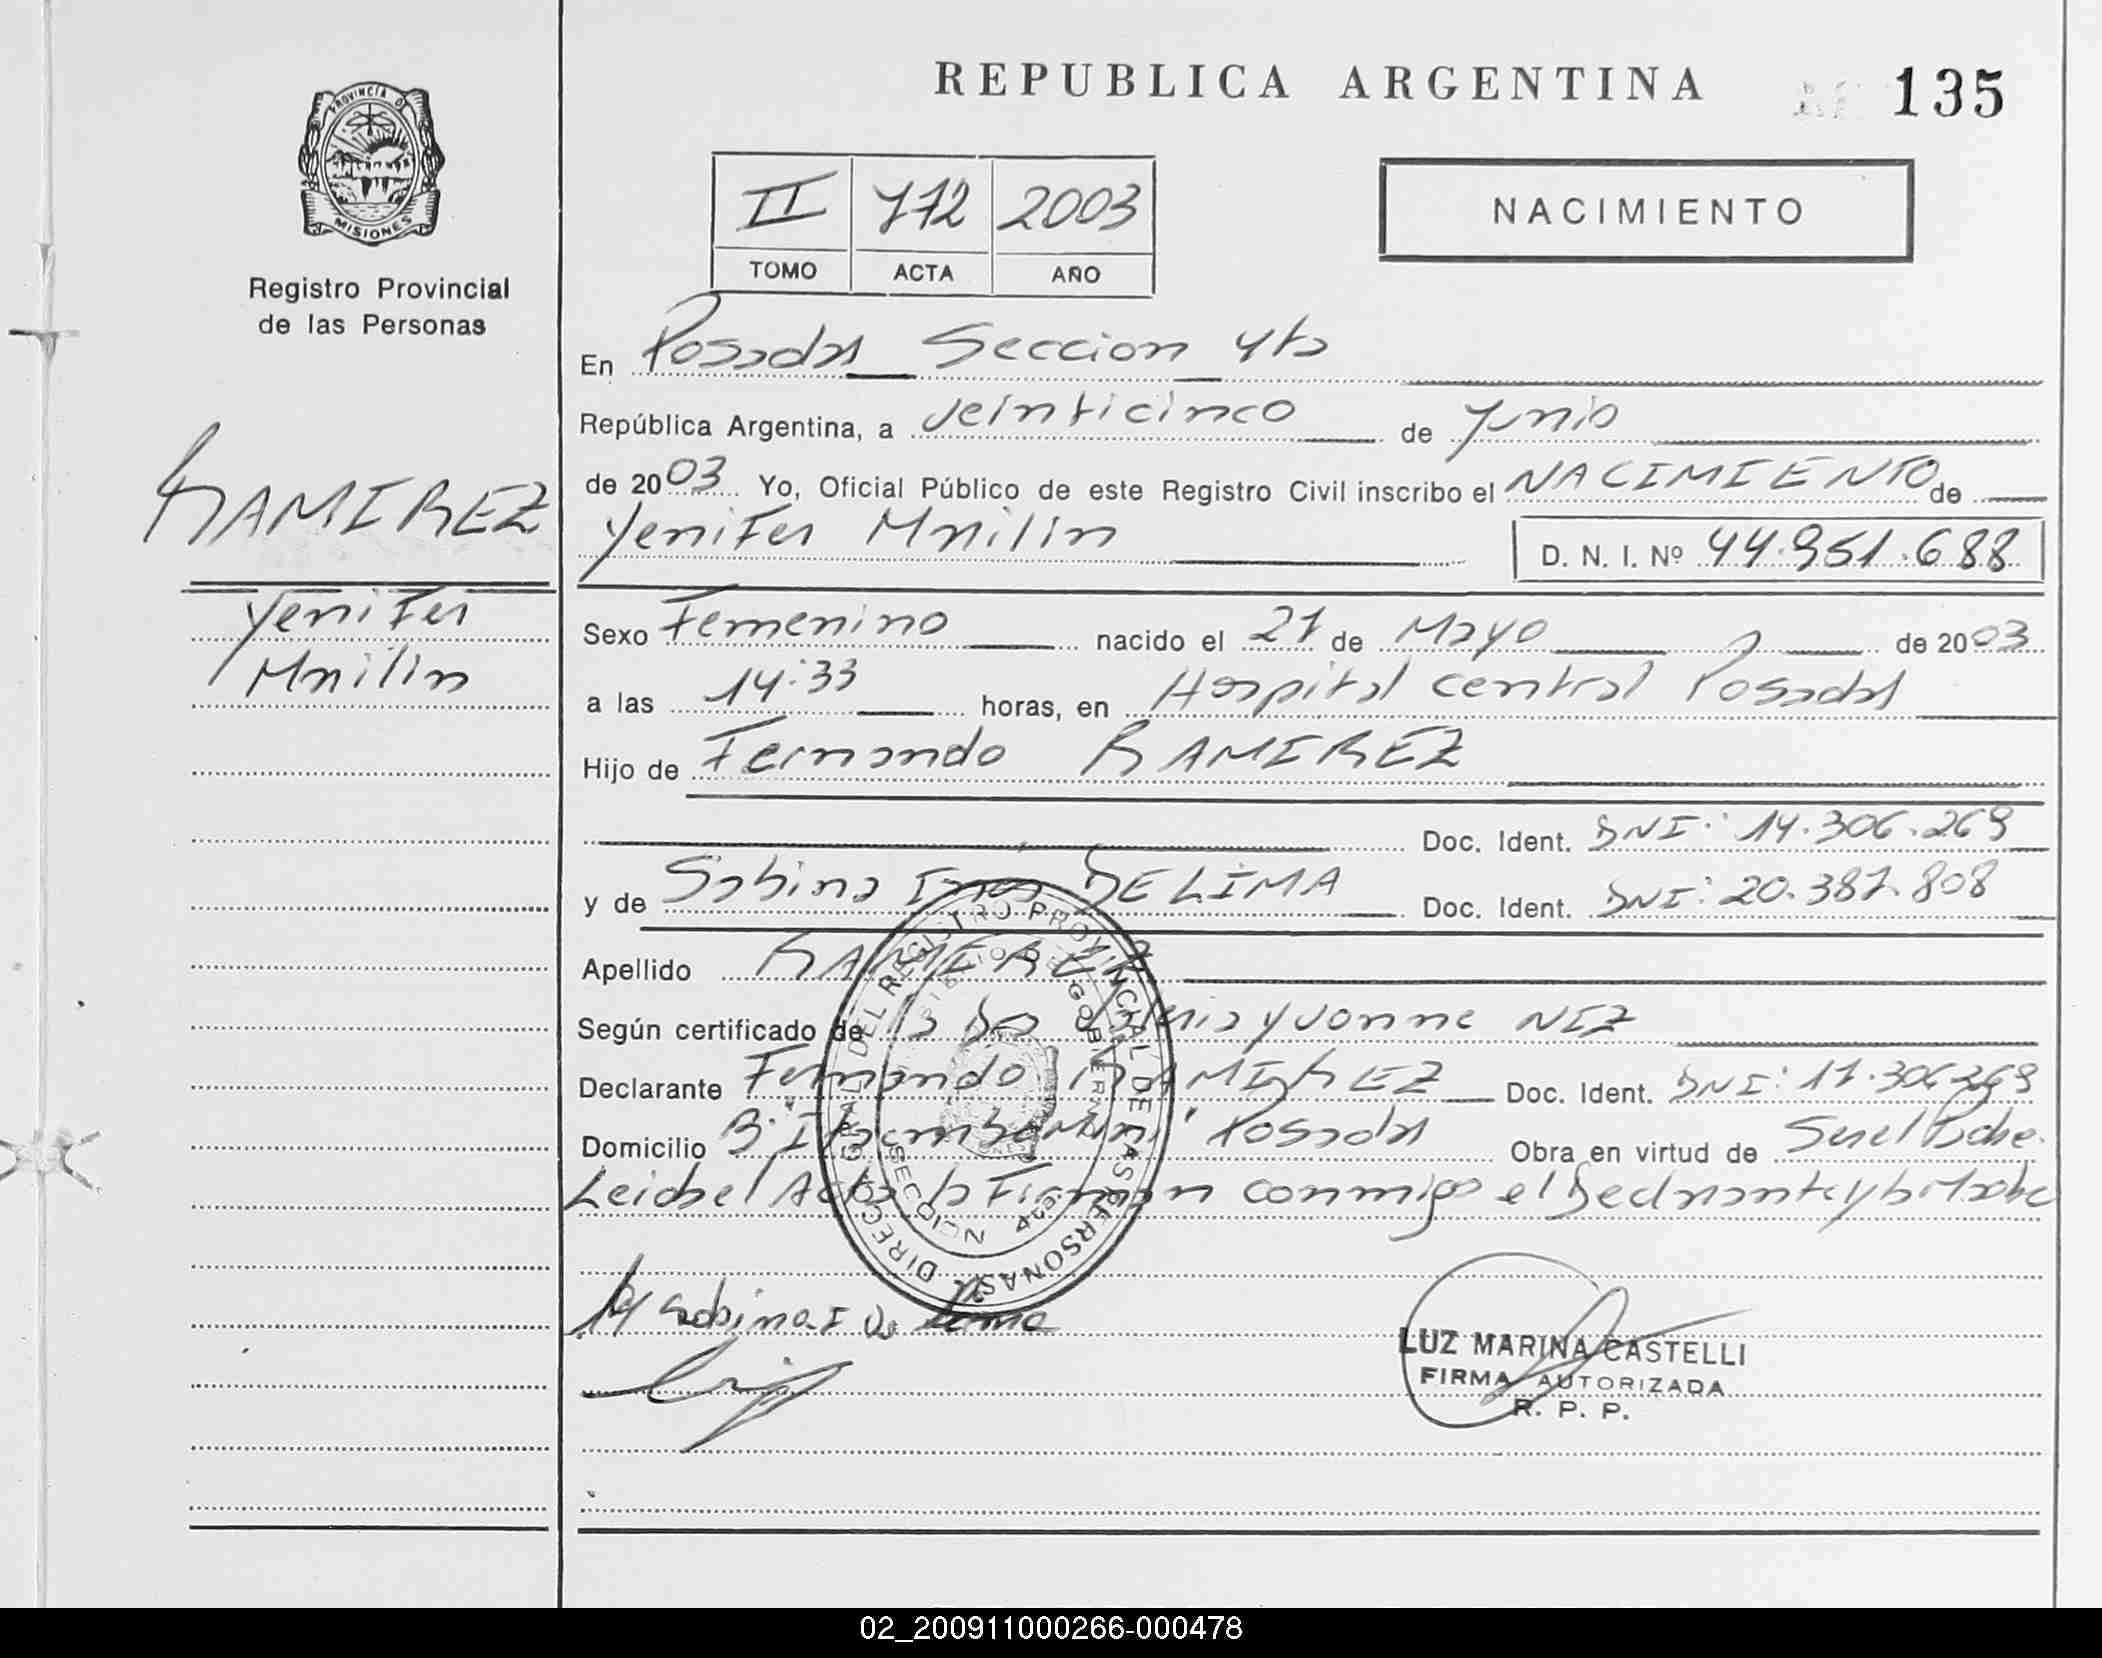 REPUBLICA ARGENTINA
135
PROVINCIA DE
MISIONES
Registro Provincial
de las Personas
II 772 2003
TOMO ACTA AÑO
NACIMIENTO
RAMIREZ
Yenifer
Mailin
En Posadas Seccion 4ta
República Argentina, a veinticinco de Junio
de 2003 Yo, Oficial Público de este Registro Civil inscribo el NACIMIENTO de
Yenifer Mailin D. N. I. Nº 44.951.688
Sexo Femenino nacido el 21 de Mayo de 2003
a las 14:33 horas, en Hospital central Posadas
Hijo de Fernando RAMIREZ
Doc. Ident. DNI: 14.306.269
y de Sabina Ines DE LIMA Doc. Ident. DNI: 20.387.808
Apellido RAMIREZ
Según certificado de la Dra Yvonne NIZ
Declarante Fernando RAMIREZ Doc. Ident. DNI: 17.306.269
Domicilio B. Posadas Obra en virtud de Ser el Padre.
Leida el Acta la Firman conmigo el Declarante y la Madre
DIRECCION GRAL DEL REGISTRO PROVINCIAL DE LAS PERSONAS
MINISTERIO DE GOBIERNO
SECCION 4ta
Sabina I De Lima
LUZ MARINA CASTELLI
FIRMA AUTORIZADA
R. P. P.
02_200911000266-000478